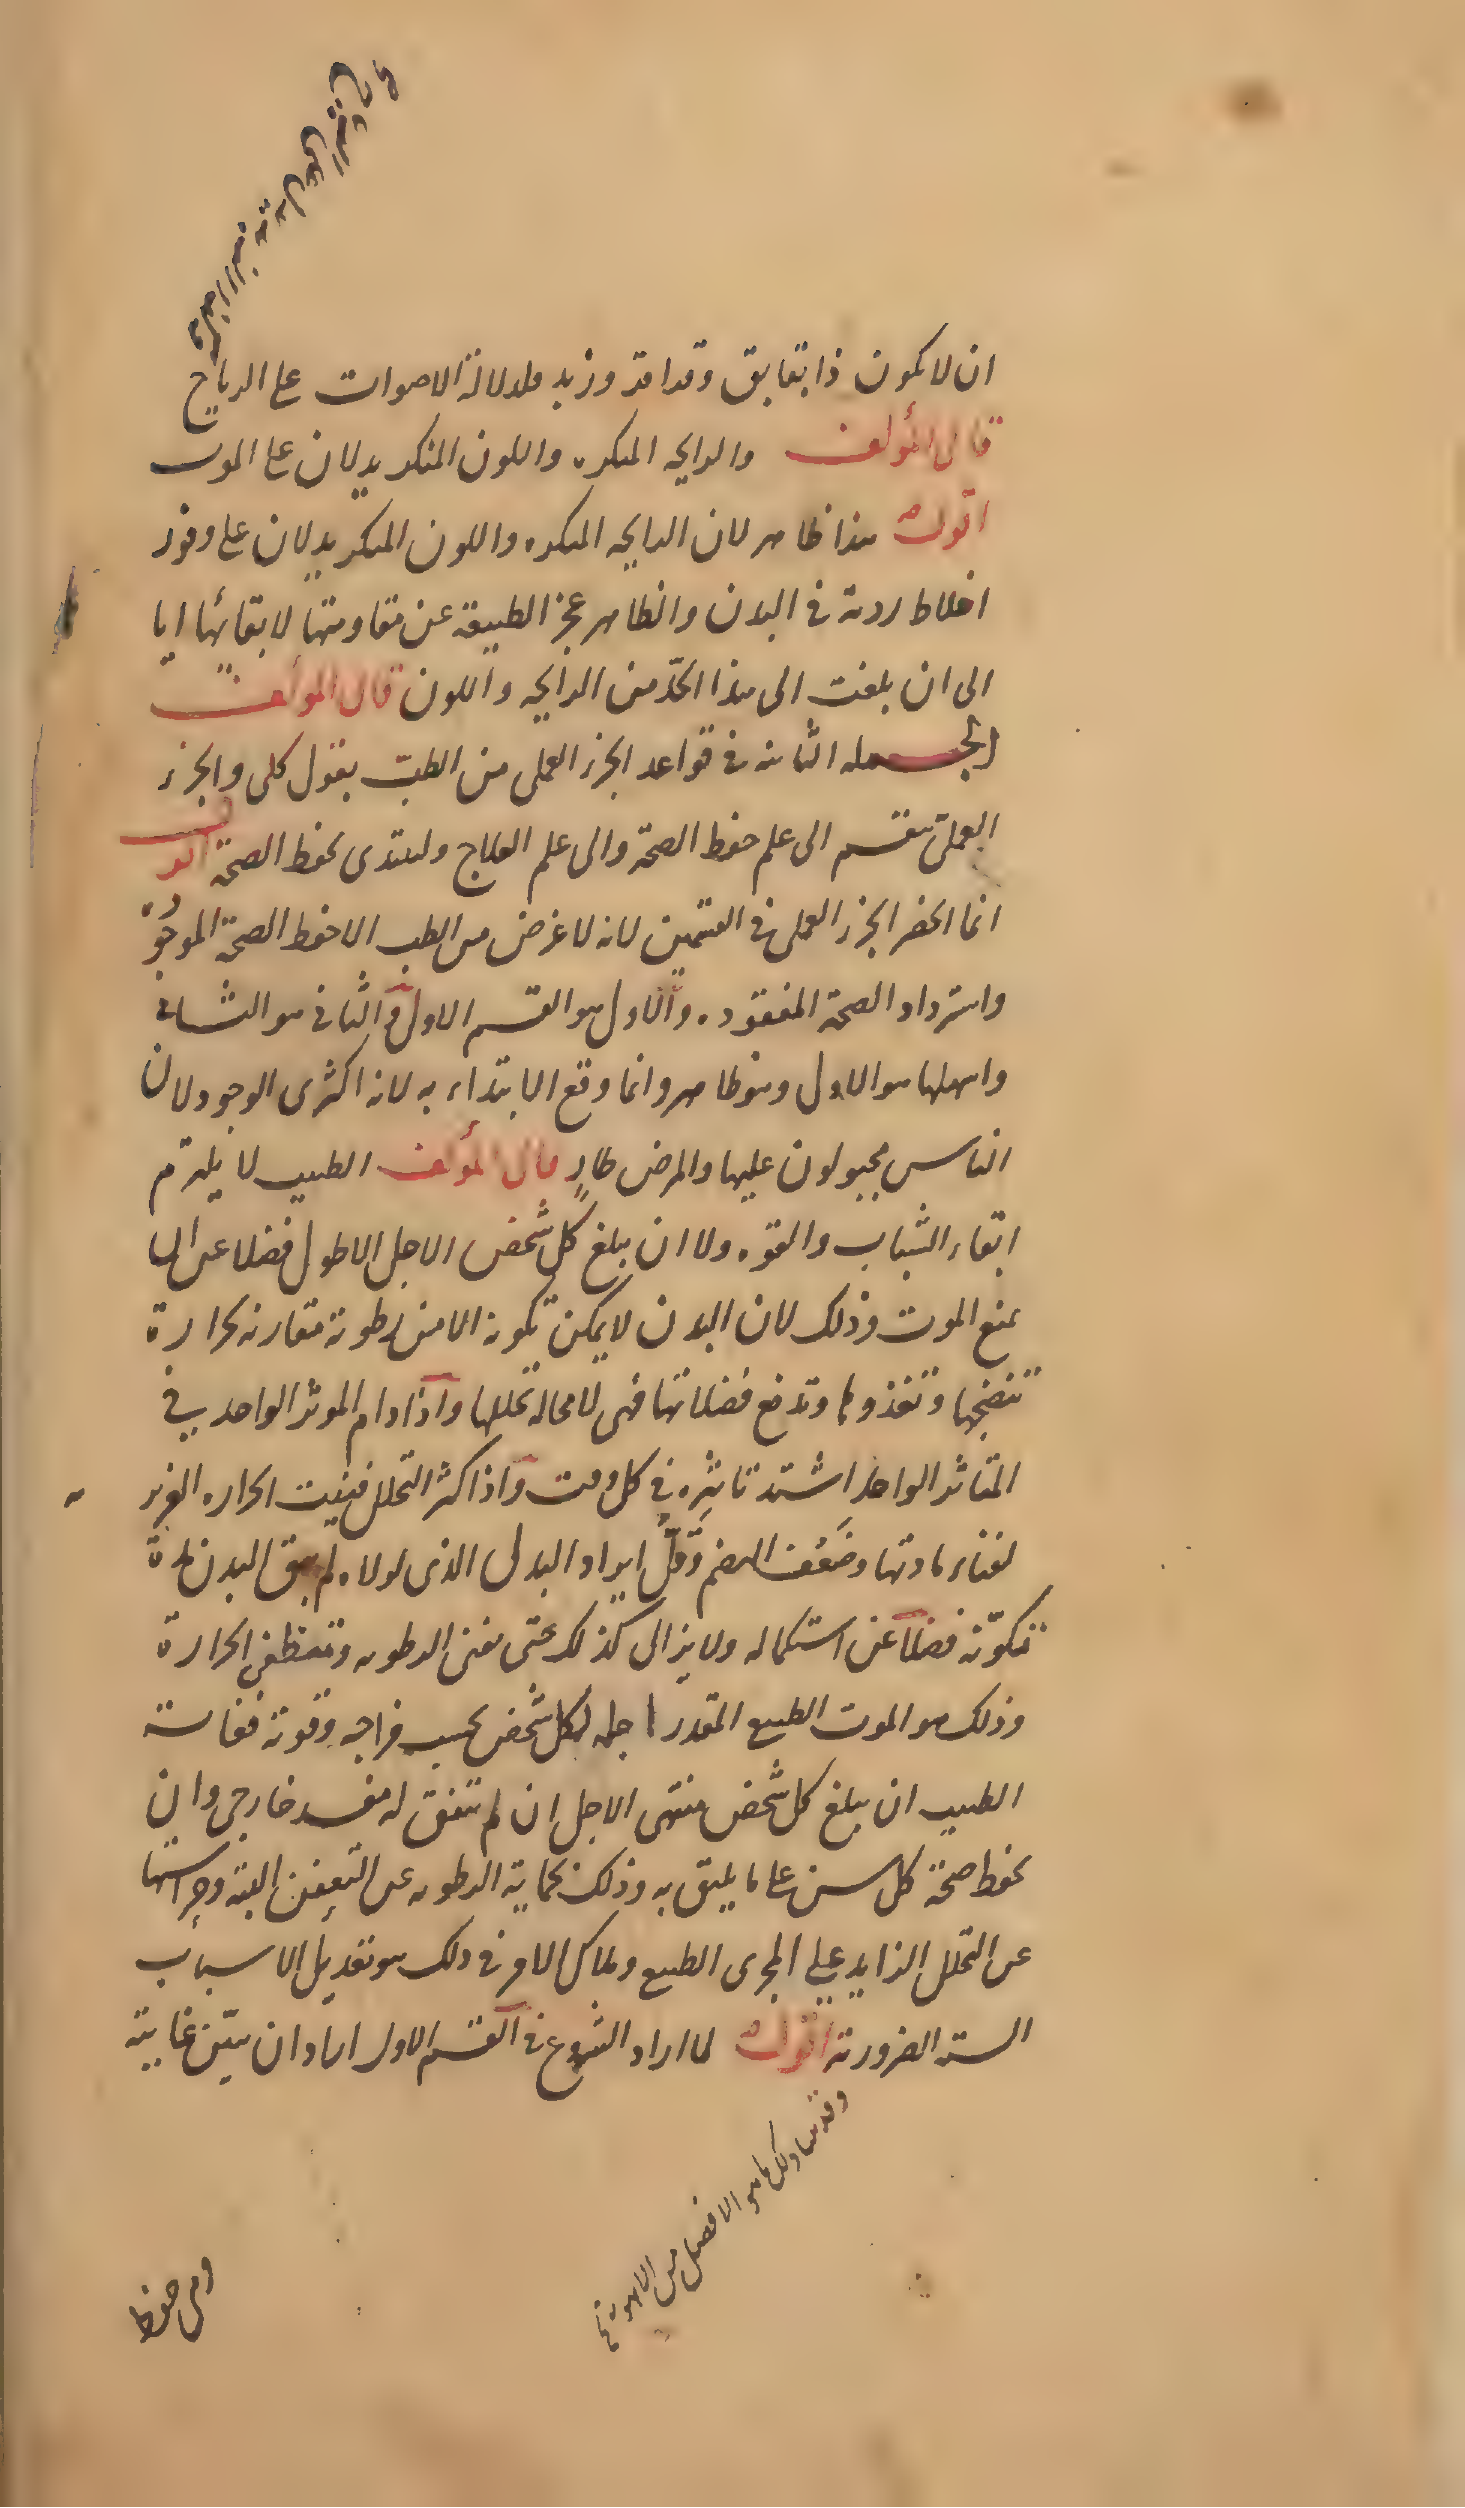 ان لا يكون ذا بقابق وقراقر وزبد فلدلالة الاصوات على الرياح
قال المؤلف والرايحه المنكره واللون المنكر يدلان على الموت
اقول هذا ظاهر لان الرايحه المنكره واللون المنكر يدلان على وفور
اخلاط ردية في البدن والظاهر عجز الطبيعة عن مقاومتها لابقائها ايا
الى ان بلغت الى هذا الحدّ من الرايحه واللون قال المؤلف
الجمله الثانية في قواعد الجزء العملى من الطب بقول كلى والجزء
العملى ينقسم الى علم حفظ الصحة والى علم العلاج ولنبتدى بحفظ الصحة اقول
انما انحصر الجزء العملى في القسمين لانه لا غرض من الطب الا حفظ الصحة الموجودة
واسترداد الصحة المفقوده والاول هو القسم الاول والثاني هو الثاني
واسهلها هو الاول وهو ظاهر وانما وقع الابتداء به لانه اكثرى الوجود لان
الناس مجبولون عليها والمرض طارٍ قال المؤلف الطبيب لا يلزم
ابقاء الشباب والقوه ولا ان يبلغ كل شخص الاجل الاطول فضلا عن ان
يمنع الموت وذلك لان البدن لا يمكن تكونه الا من رطوبة مقارنة لحرارة
تنضجها وتغذوها وتدفع فضلاتها فهى لا محاله تحللها واذا دام المؤثر الواحد في
المتاثر الواحد اشتد تاثيره في كل وقت واذا كثر التحلل فنيت الحراره الغريز
لفناء مادتها وضعف الهضم وقلّ ايراد البدل الذى لولاه لم يبق البدن مدة
تكوّنه فضلاً عن استكماله ولا يزال كذلك حتى تفنى الرطوبه وتنطفى الحرارة
وذلك هو الموت الطبيعى المقدر اجله لكل شخص بحسب مزاجه وقوته فغاية
الطبيب ان يبلغ كل شخص منتهى الاجل ان لم يتفق له مفسد خارجى وان
يحفظ صحة كل سن على ما يليق به وذلك بحماية الرطوبه عن التعفن البتة وحراستها
عن التحلل الزايد على المجرى الطبيعى وملاك الامر في ذلك هو تعديل الاسباب
الستة الضرورية اقول لما اراد الشروع في القسم الاول اراد ان يبين غايته
وهى حفظ